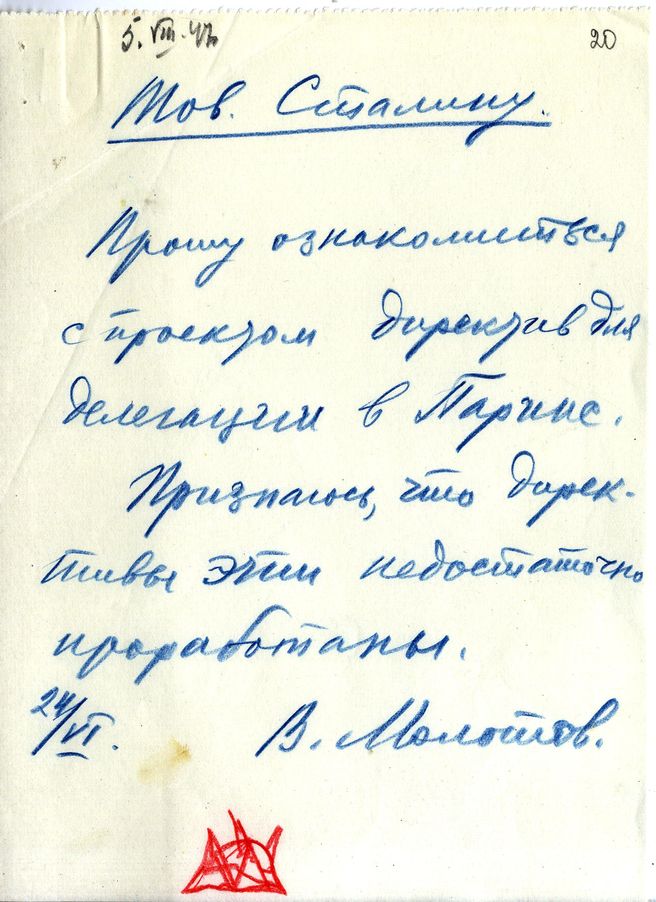 5. VIII. 47
20
Тов. Сталину.
Прошу ознакомиться
с проектом директив для
делегации в Париж.
Признаюсь, что дирек-
тивы эти недостаточно
проработаны.
24/VI.
В. Молотов.